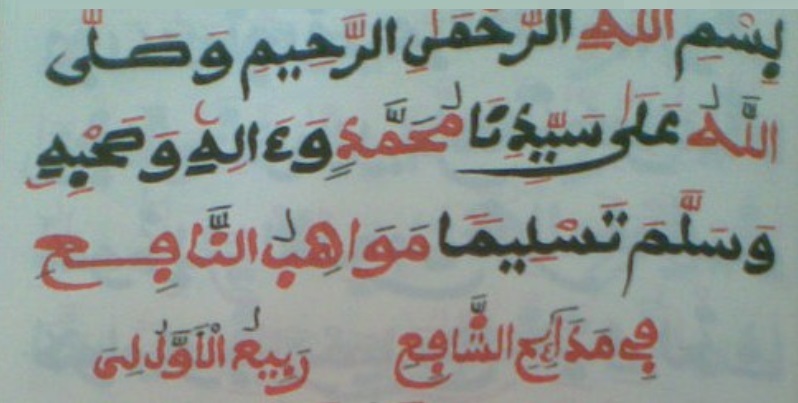 بِسْمِ اللَّهِ الرَّحْمَٰنِ الرَّحِيمِ وَصَلَّى
اللَّهُ عَلَى سَيِّدِنَا مُحَمَّدٍ وَءَالِهِ وَصَحْبِهِ
وَسَلَّمَ تَسْلِيمًا مَوَاهِبُ النَّافِعِ
فِي مَدَائِحِ الشَّافِعِ رَبِيعُ الْأَوَّلُ لِي